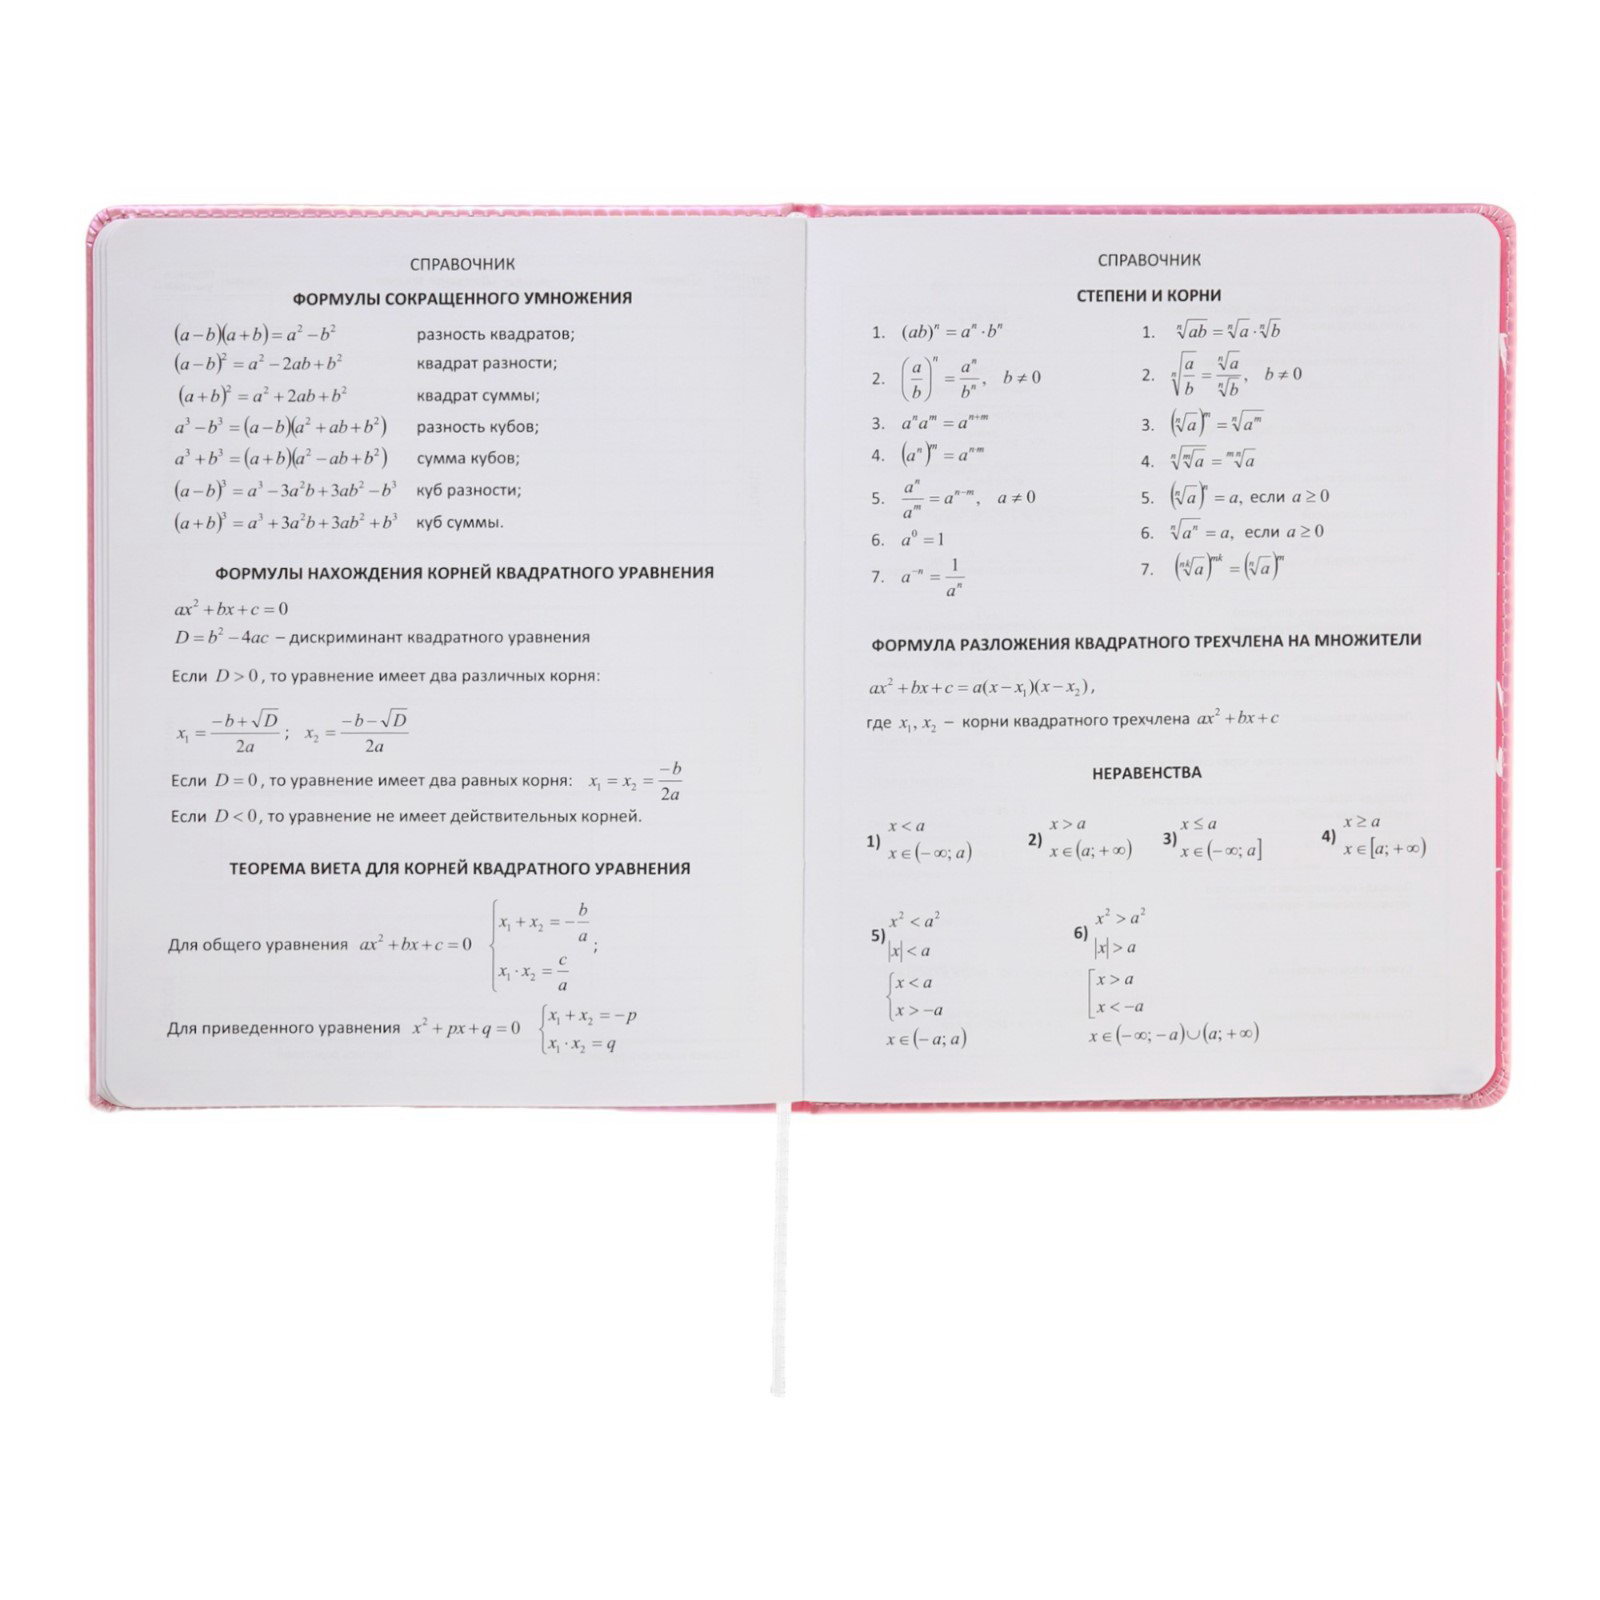 СПРАВОЧНИК
ФОРМУЛЫ СОКРАЩЕННОГО УМНОЖЕНИЯ
(a−b)(a+b)=a²−b² разность квадратов;
(a−b)²=a²−2ab+b² квадрат разности;
(a+b)²=a²+2ab+b² квадрат суммы;
a³−b³=(a−b)(a²+ab+b²) разность кубов;
a³+b³=(a+b)(a²−ab+b²) сумма кубов;
(a−b)³=a³−3a²b+3ab²−b³ куб разности;
(a+b)³=a³+3a²b+3ab²+b³ куб суммы.
ФОРМУЛЫ НАХОЖДЕНИЯ КОРНЕЙ КВАДРАТНОГО УРАВНЕНИЯ
ax²+bx+c=0
D=b²−4ac − дискриминант квадратного уравнения
Если D>0, то уравнение имеет два различных корня:
x₁=(−b+√D)/2a; x₂=(−b−√D)/2a
Если D=0, то уравнение имеет два равных корня: x₁=x₂=−b/2a
Если D<0, то уравнение не имеет действительных корней.
ТЕОРЕМА ВИЕТА ДЛЯ КОРНЕЙ КВАДРАТНОГО УРАВНЕНИЯ
Для общего уравнения ax²+bx+c=0 {x₁+x₂=−b/a
x₁·x₂=c/a;
Для приведенного уравнения x²+px+q=0 {x₁+x₂=−p
x₁·x₂=q
СПРАВОЧНИК
СТЕПЕНИ И КОРНИ
1. (ab)ⁿ=aⁿ·bⁿ
2. (a/b)ⁿ=aⁿ/bⁿ, b≠0
3. aⁿaᵐ=aⁿ⁺ᵐ
4. (aⁿ)ᵐ=aⁿ·ᵐ
5. aⁿ/aᵐ=aⁿ⁻ᵐ, a≠0
6. a⁰=1
7. a⁻ⁿ=1/aⁿ
1. ⁿ√ab=ⁿ√a·ⁿ√b
2. ⁿ√(a/b)=ⁿ√a/ⁿ√b, b≠0
3. (ⁿ√a)ᵐ=ⁿ√aᵐ
4. ⁿ√ᵐ√a=ᵐⁿ√a
5. (ⁿ√a)ⁿ=a, если a≥0
6. ⁿ√aⁿ=a, если a≥0
7. (ⁿᵏ√a)ᵐᵏ=(ⁿ√a)ᵐ
ФОРМУЛА РАЗЛОЖЕНИЯ КВАДРАТНОГО ТРЕХЧЛЕНА НА МНОЖИТЕЛИ
ax²+bx+c=a(x−x₁)(x−x₂),
где x₁, x₂ − корни квадратного трехчлена ax²+bx+c
НЕРАВЕНСТВА
1) x<a
x∈(−∞;a)
2) x>a
x∈(a;+∞)
3) x≤a
x∈(−∞;a]
4) x≥a
x∈[a;+∞)
5) x²<a²
|x|<a
{x<a
x>−a
x∈(−a;a)
6) x²>a²
|x|>a
[x>a
x<−a
x∈(−∞;−a)∪(a;+∞)